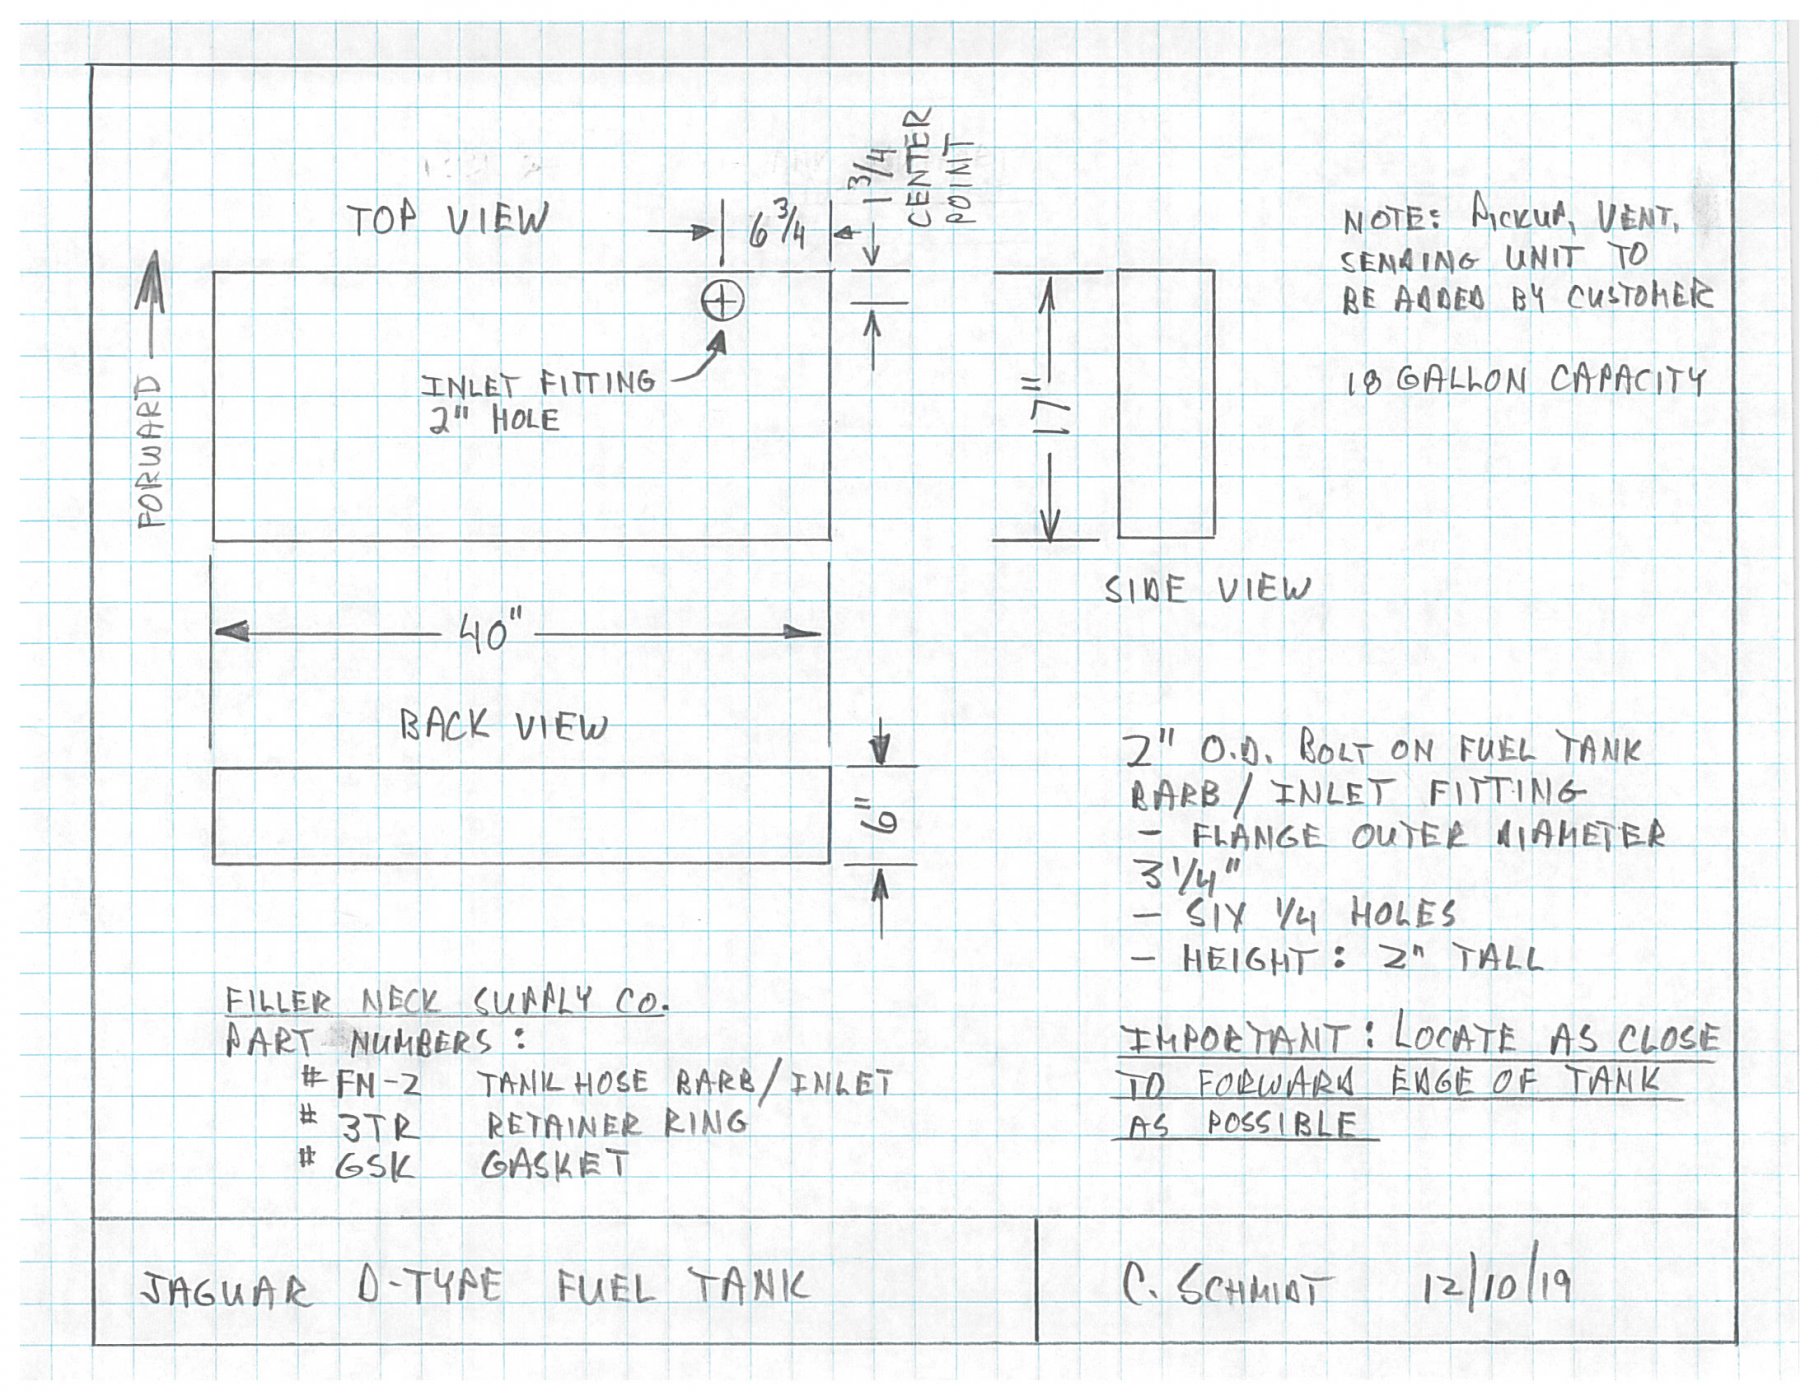 TOP VIEW
6 3/4
1 3/4
CENTER
POINT
FORWARD
INLET FITTING
2" HOLE
17"
SIDE VIEW
NOTE: PICKUP, VENT,
SENDING UNIT TO
BE ADDED BY CUSTOMER
18 GALLON CAPACITY
40"
BACK VIEW
6"
2" O.D. BOLT ON FUEL TANK
BARB / INLET FITTING
- FLANGE OUTER DIAMETER
3 1/4"
- SIX 1/4 HOLES
- HEIGHT: 2" TALL
IMPORTANT: LOCATE AS CLOSE
TO FORWARD EDGE OF TANK
AS POSSIBLE
FILLER NECK SUPPLY CO.
PART NUMBERS:
# FN-2 TANK HOSE BARB/INLET
# 3TR RETAINER RING
# GSK GASKET
JAGUAR D-TYPE FUEL TANK
C. SCHMIDT 12/10/19